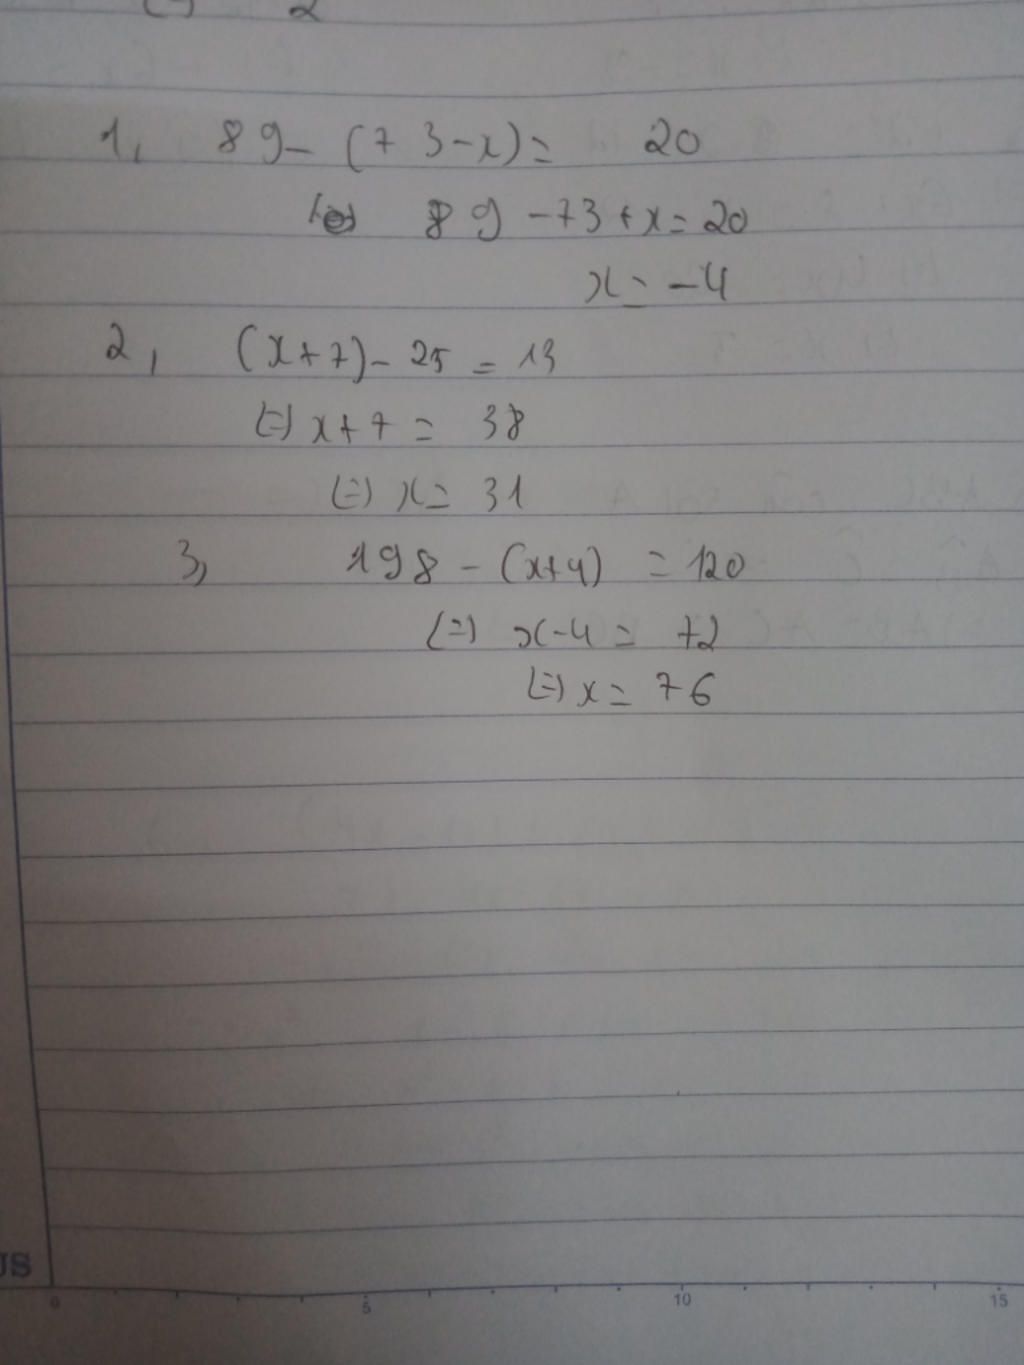 2
1, 89 - (73 - x) = 20
89 - 73 + x = 20
x = -4
2, (x + 7) - 25 = 13
(=) x + 7 = 38
(=) x = 31
3, 198 - (x+4) = 120
(=) x - 4 = 72
(=) x = 76
US
0 5 10 15